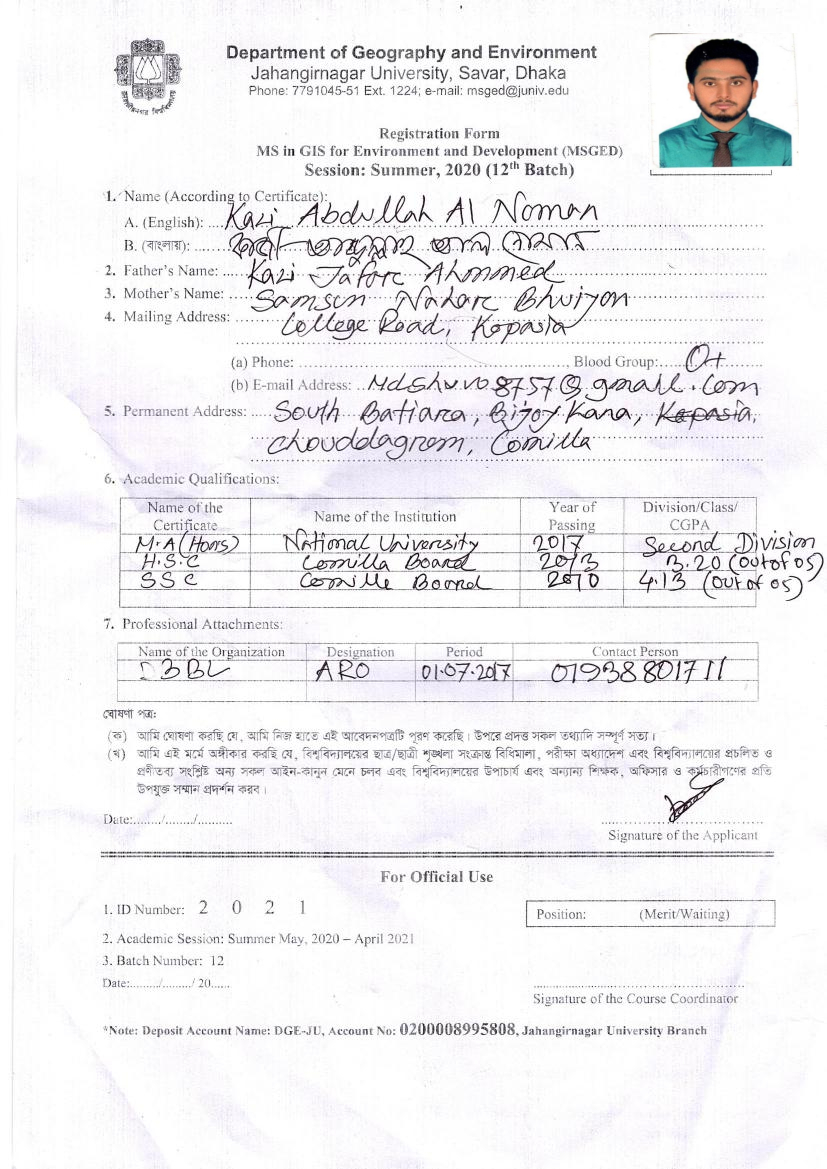 Department of Geography and Environment
Jahangirnagar University, Savar, Dhaka
Phone: 7791045-51 Ext. 1224; e-mail: msged@juniv.edu
Registration Form
MS in GIS for Environment and Development (MSGED)
Session: Summer, 2020 (12th Batch)
1. Name (According to Certificate):
A. (English): Kazi Abdullah Al Noman
B. (বাংলায়): কাজী আব্দুল্লাহ আল নোমান
2. Father's Name: Kazi Jafor Ahmmed
3. Mother's Name: Samsun Nahar Bhuiyon
4. Mailing Address: College Road, Kopasia
(a) Phone: Blood Group: O+
(b) E-mail Address: Mdshuvo8757@gmail.com
5. Permanent Address: South Batiara, Bijoy Kara, Kopasia,
chouddagrom, Comilla
6. Academic Qualifications:
Name of the Certificate Name of the Institution Year of Passing Division/Class/ CGPA
M.A (Hons) National University 2017 Second Division
H.S.C Comilla Board 2013 3.20 (out of 05)
SSC Comille Board 2010 4.13 (out of 05)
7. Professional Attachments:
Name of the Organization Designation Period Contact Person
ARO 01-07-2017 01938801711
ঘোষণা পত্র:
(ক) আমি ঘোষণা করছি যে, আমি নিজ হাতে এই আবেদনপত্রটি পূরণ করেছি। উপরে প্রদত্ত সকল তথ্যাদি সম্পূর্ণ সত্য।
(খ) আমি এই মর্মে অঙ্গীকার করছি যে, বিশ্ববিদ্যালয়ের ছাত্র/ছাত্রী শৃঙ্খলা সংক্রান্ত বিধিমালা, পরীক্ষা অধ্যাদেশ এবং বিশ্ববিদ্যালয়ের প্রচলিত ও
প্রণীতব্য সংশ্লিষ্ট অন্য সকল আইন-কানুন মেনে চলব এবং বিশ্ববিদ্যালয়ের উপাচার্য এবং অন্যান্য শিক্ষক, অফিসার ও কর্মচারীগণের প্রতি
উপযুক্ত সম্মান প্রদর্শন করব।
Date:......../......../..........
Signature of the Applicant
For Official Use
1. ID Number: 2 0 2 1
Position: (Merit/Waiting)
2. Academic Session: Summer May, 2020 – April 2021
3. Batch Number: 12
Date:........./........./ 20......
Signature of the Course Coordinator
*Note: Deposit Account Name: DGE-JU, Account No: 0200008995808, Jahangirnagar University Branch